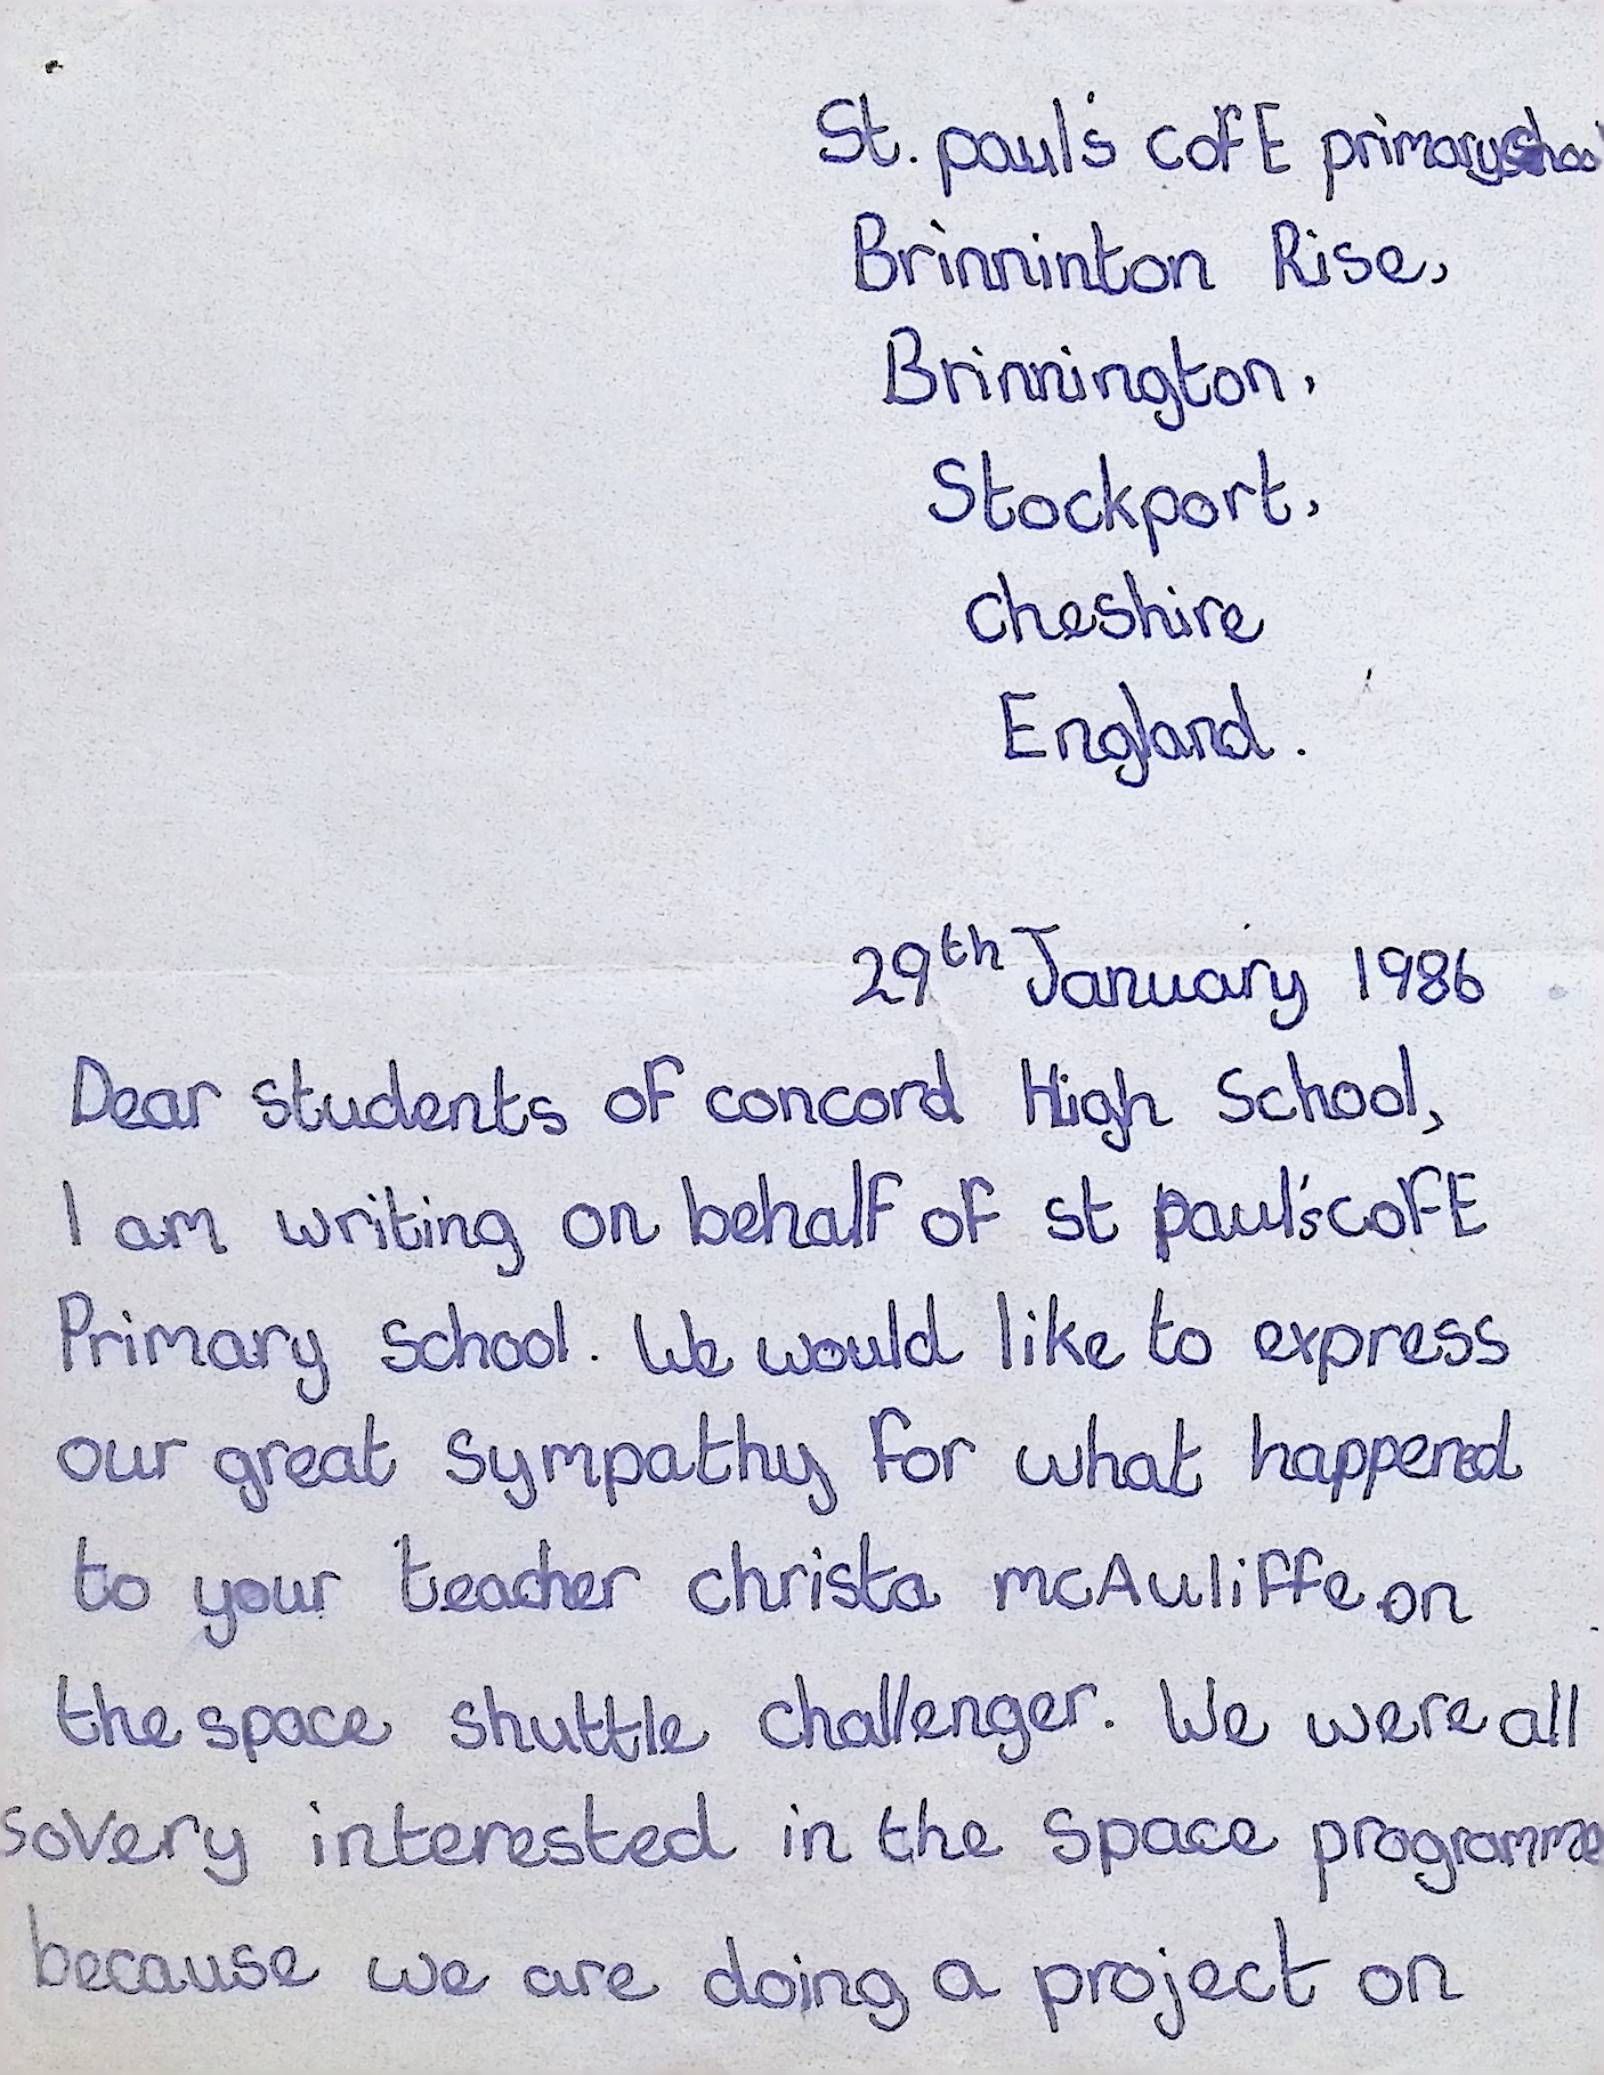 St. paul's cofE primaryschool
Brinninton Rise,
Brinnington,
Stockport,
cheshire
England.
29th January 1986
Dear students of concord High School,
I am writing on behalf of st paul's cofE
Primary school. We would like to express
our great sympathy for what happened
to your teacher christa mcAuliffe on
the space shuttle challenger. We were all
so very interested in the space programme
because we are doing a project on